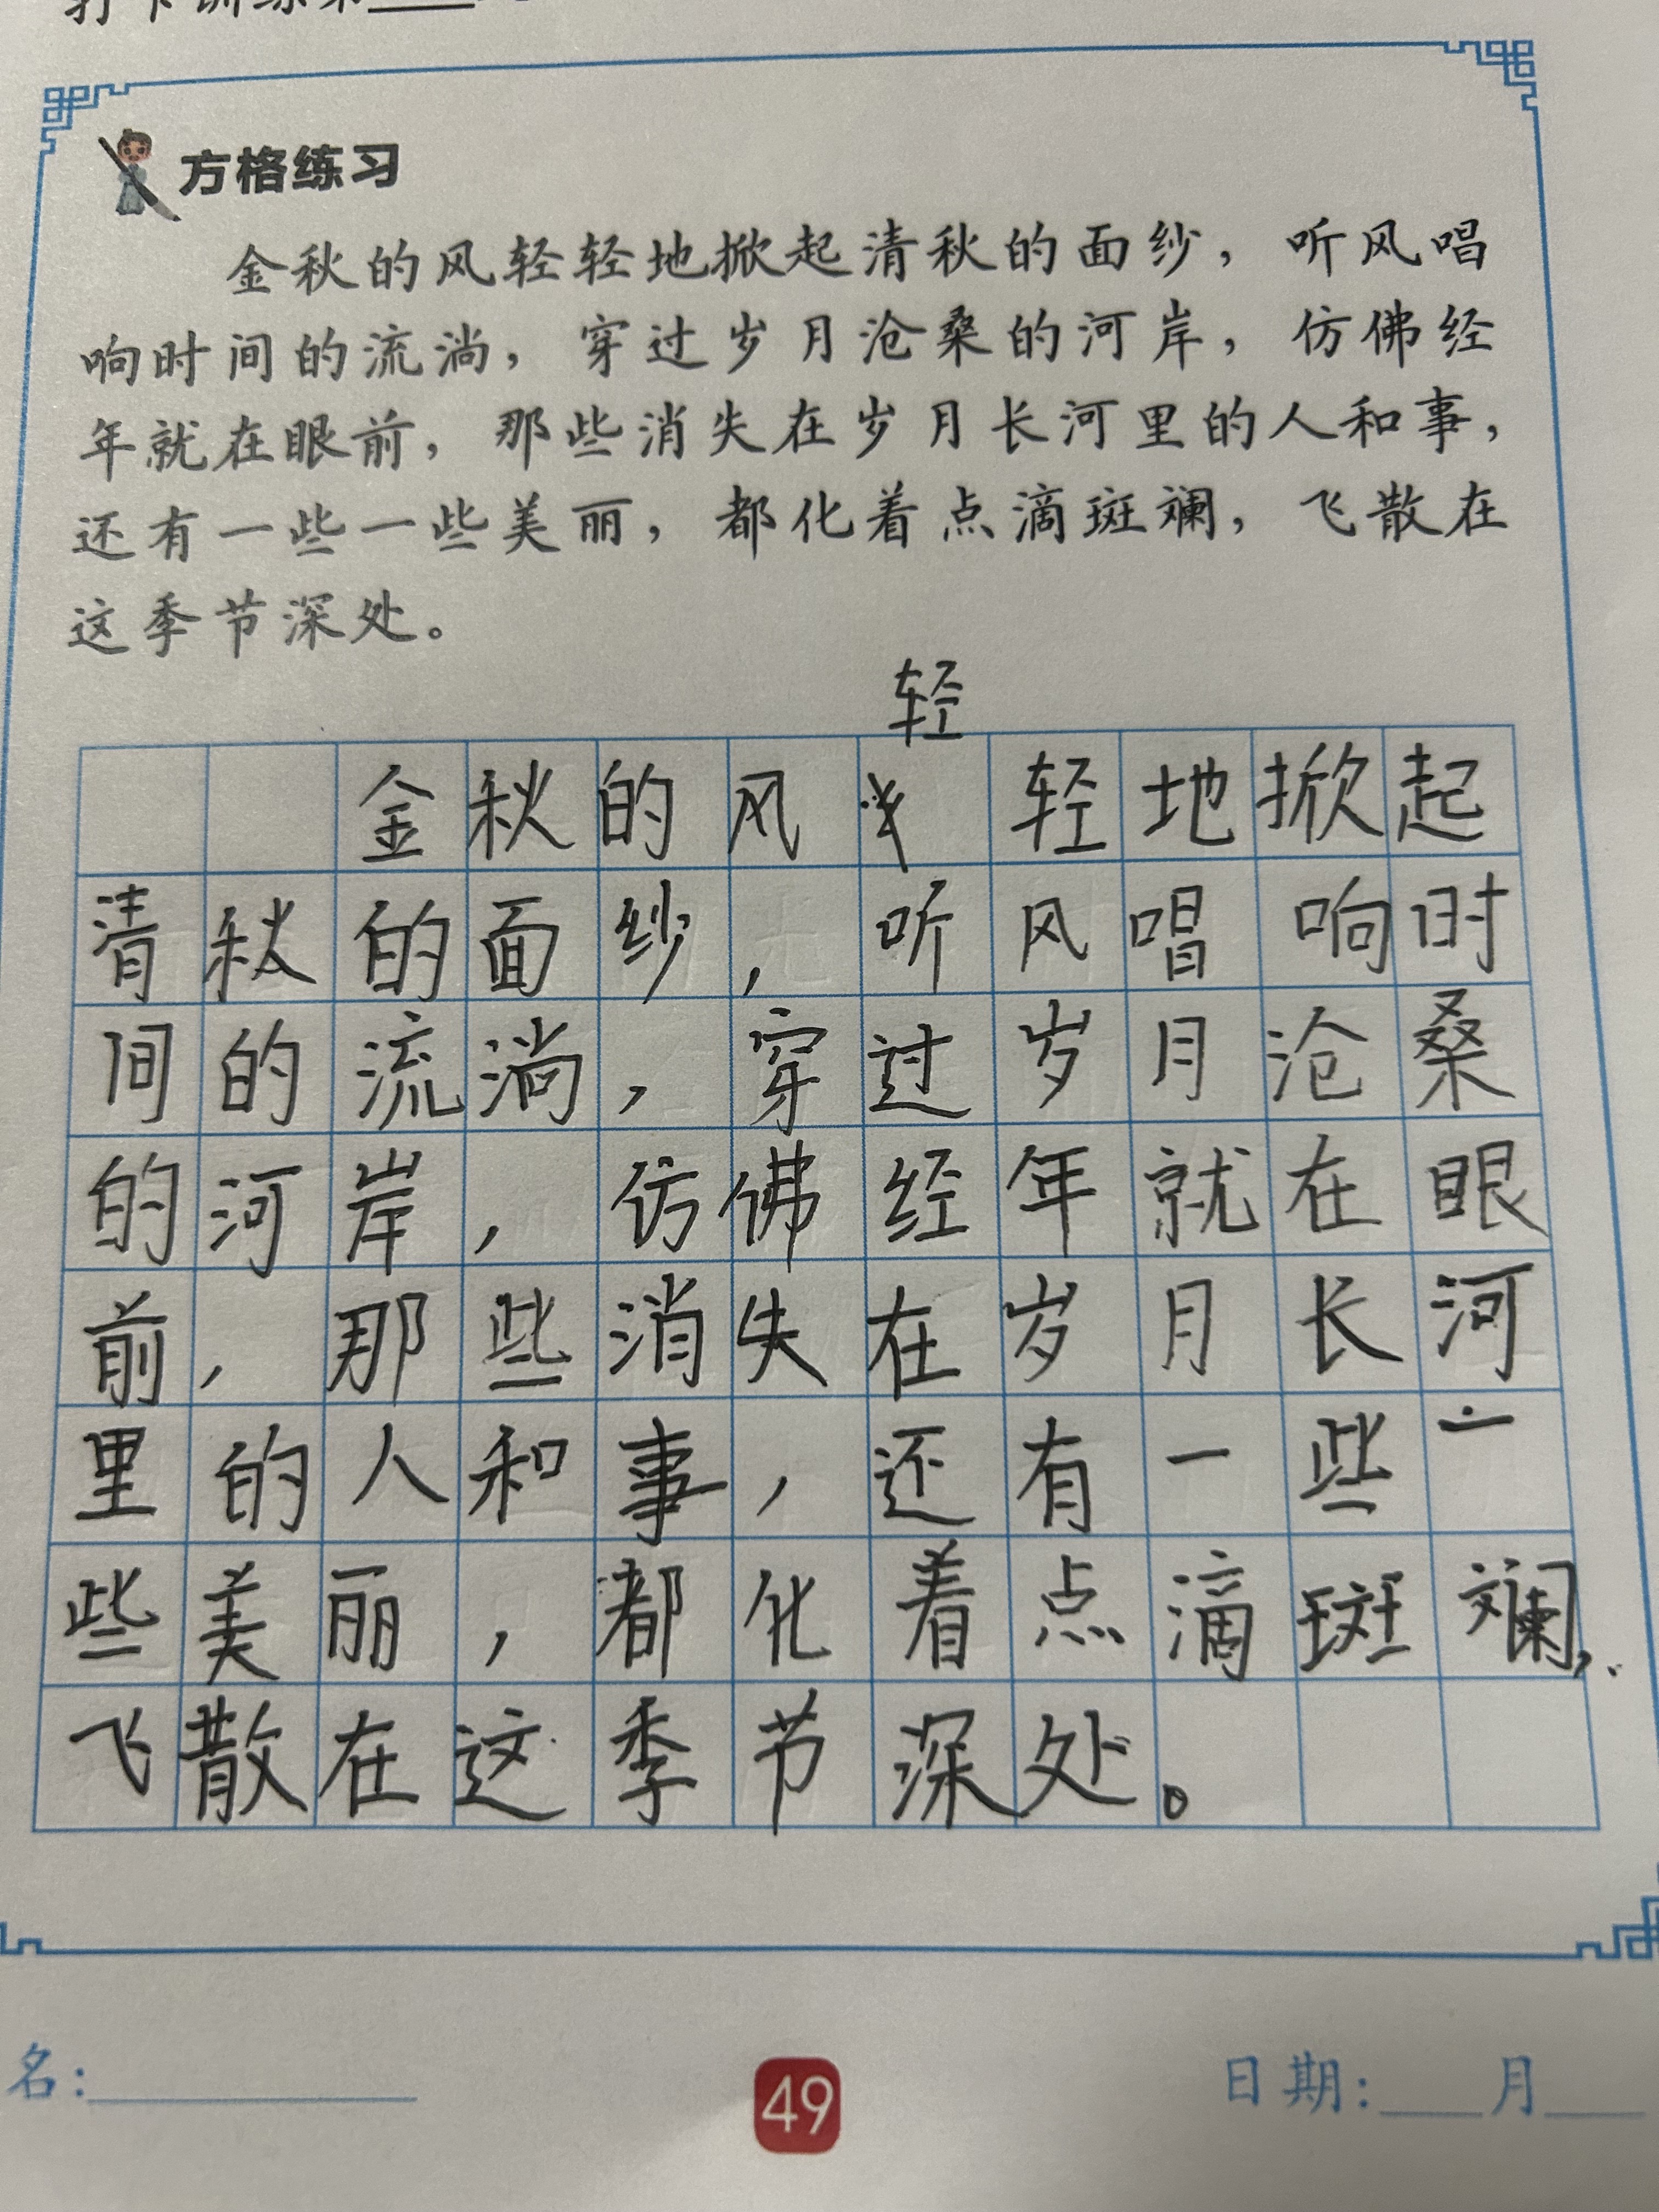 打卡训练第
方格练习
金秋的风轻轻地掀起清秋的面纱，听风唱
响时间的流淌，穿过岁月沧桑的河岸，仿佛经
年就在眼前，那些消失在岁月长河里的人和事，
还有一些一些美丽，都化着点滴斑斓，飞散在
这季节深处。
轻
金秋的风 轻地掀起
清秋的面纱，听风唱响时
间的流淌，穿过岁月沧桑
的河岸，仿佛经年就在眼
前，那些消失在岁月长河
里的人和事，还有一些一
些美丽，都化着点滴斑斓，
飞散在这季节深处。
名：
49
日期：___月___